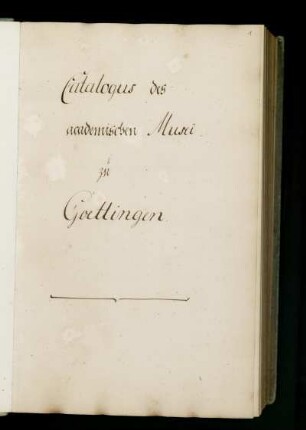 Catalogus des
academischen Musei
zu
Goettingen